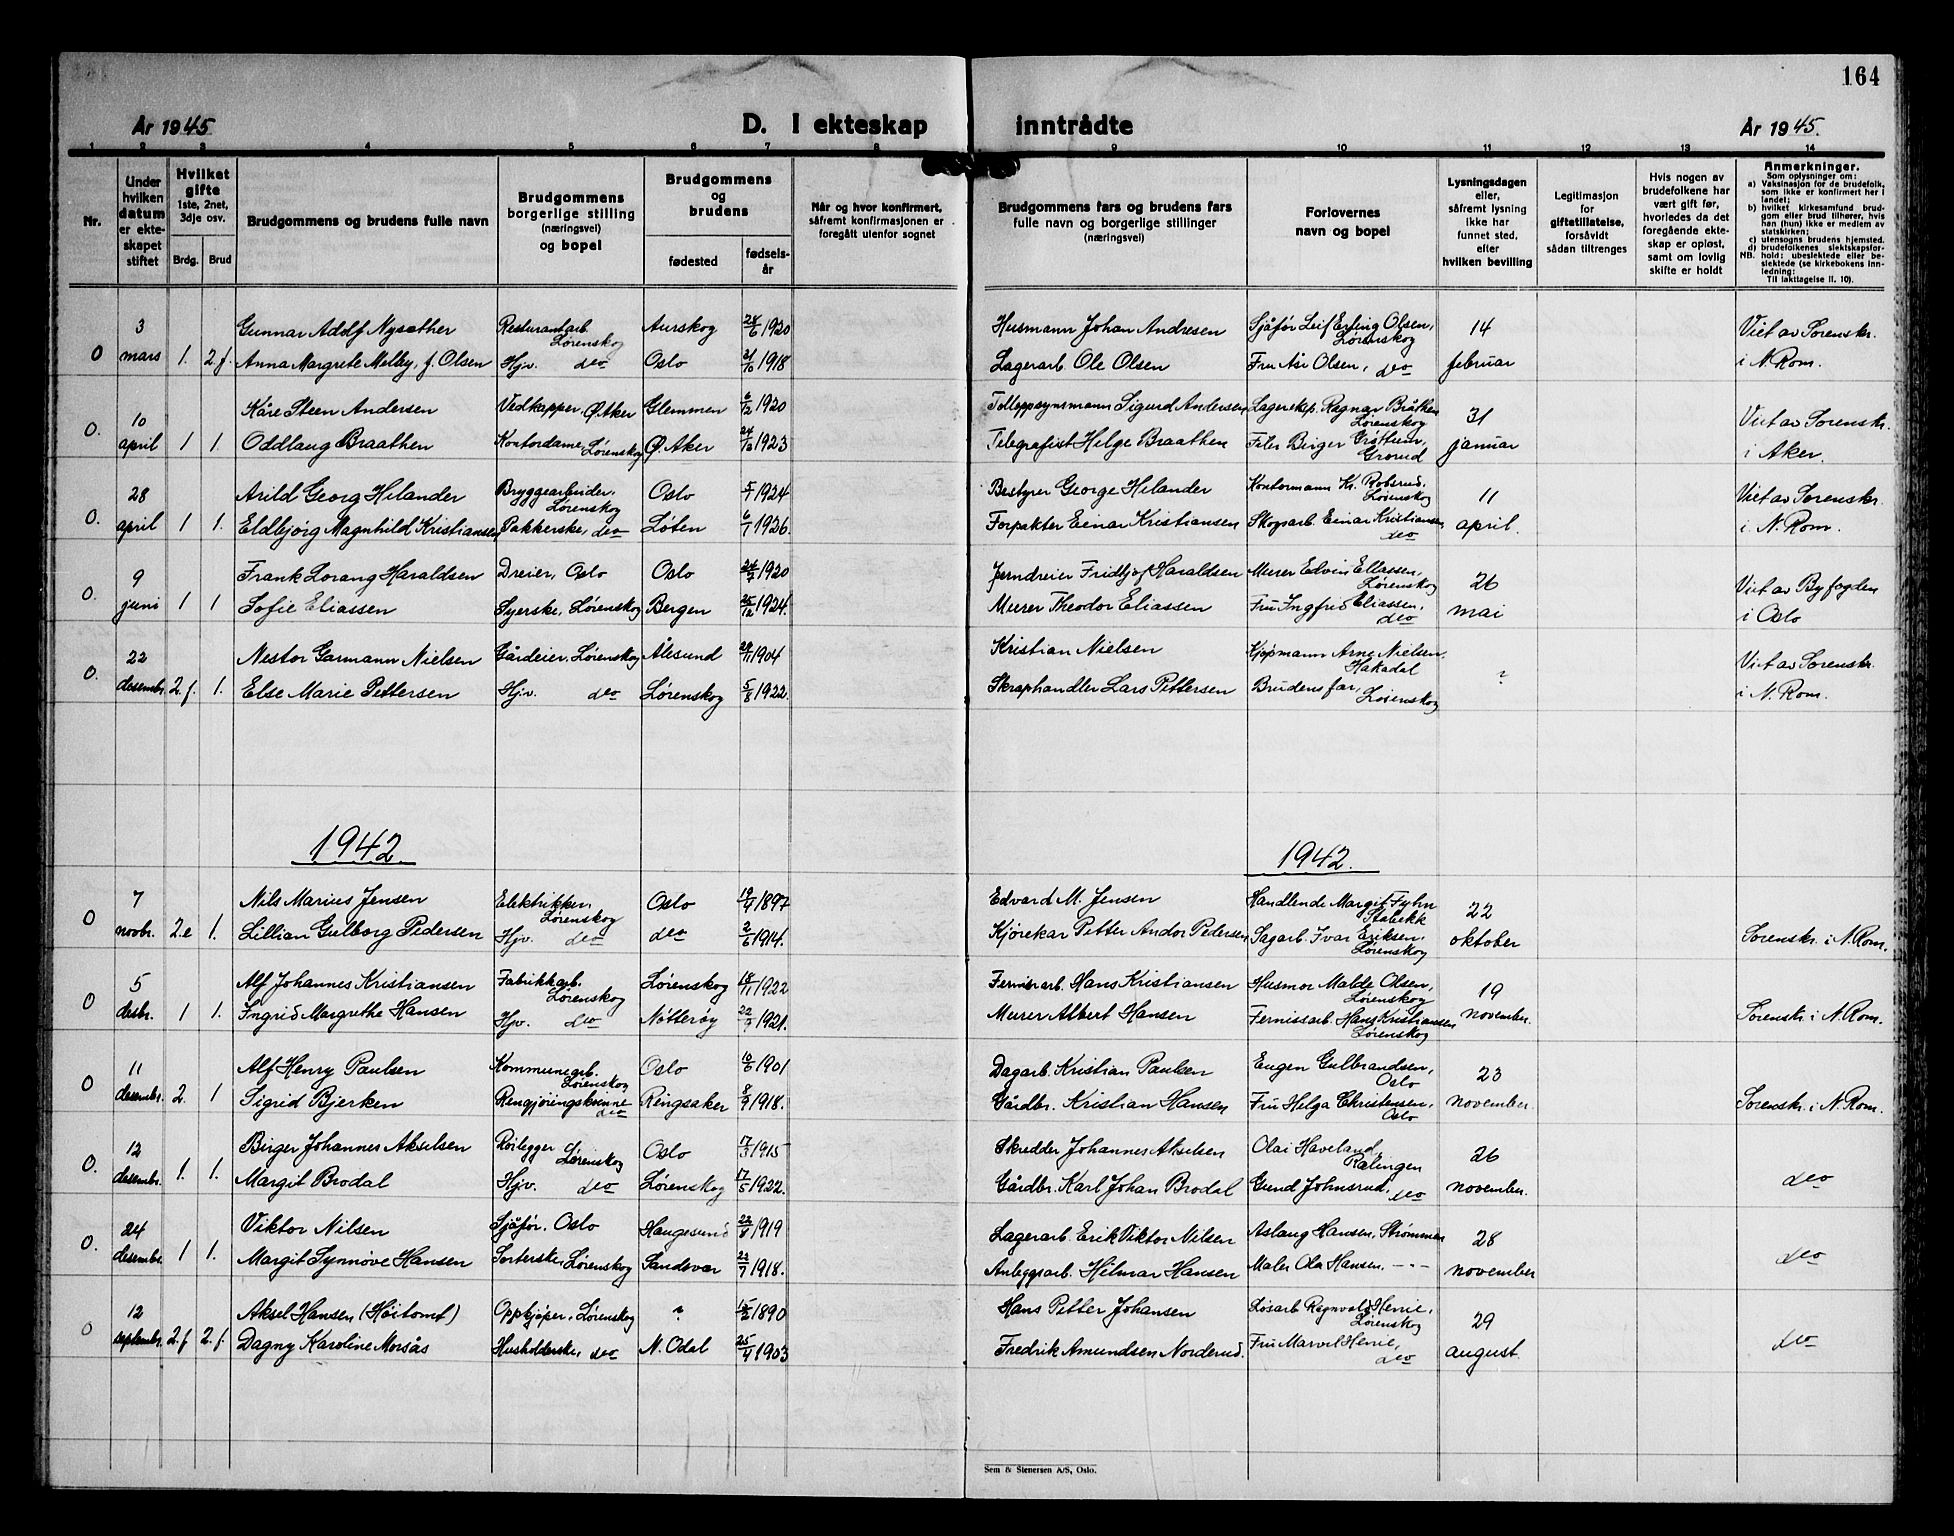 164
År 1945
D. I ekteskap inntrådte
År 1945.
1 2 3 4 5 6 7 8 9 10 11 12 13 14
Nr.
Under hvilken datum er ekteskapet stiftet
Hvilket gifte 1ste, 2net, 3dje osv.
Brdg. Brud
Brudgommens og brudens fulle navn
Brudgommens borgerlige stilling (næringsvei) og bopel
Brudgommens og brudens
fødested
fødselsår
Når og hvor konfirmert, såfremt konfirmasjonen er foregått utenfor sognet
Brudgommens fars og brudens fars fulle navn og borgerlige stillinger (næringsvei)
Forlovernes navn og bopel
Lysningsdagen eller, såfremt lysning ikke har funnet sted, efter hvilken bevilling
Legitimasjon for giftetillatelse, forsåvidt sådan tiltrenges
Hvis nogen av brudefolkene har vært gift før, hvorledes da det foregående ekteskap er opløst, samt om lovlig skifte er holdt
Anmerkninger.
Som oplysninger om:
a) Vaksinasjon for de brudefolk, som ikke er konfirmert her i landet;
b) hvilket kirkesamfund brudgom eller brud tilhører, hvis han (hun) ikke er medlem av statskirken;
c) utensogns brudens hjemsted.
d) brudefolkenes slektskapsforhold: ubeslektede eller beslektede (se kirkebokens innledning:
NB. Til iakttagelse II. 10).
0 3 mars 1. 2 f. Gunnar Adolf Nysæther Resturantarb. Lørenskog Aurskog 24/6 1920 Husmann Johan Andresen Sjåfør Leif Erling Olsen, Lørenskog 14 februar Viet av Sorenskr. i N. Rom.
Anna Margrete Melby, f. Olsen Hjv. do Oslo 21/10 1918 Lagerarb. Ole Olsen Fru Åse Olsen, do
0. 10 april 1 1. Kåre Steen Andersen Vedkapper, Ø. Aker Glemmen 6/12 1920 Tolloppsynsmann Sigurd Andersen Lagereksp. Ragnar Bråthen Lørenskog 31 januar Viet av Sorenskr. i Aker.
Oddlaug Braathen Kontordame, Lørenskog Ø. Aker 1923 Telegrafist Helge Braathen Birger Grøttum, Grorud
0. 28 april 1 1. Arild Georg Helander Bryggearbeider, Lørenskog Oslo 5/7 1924 Bestyrer George Helander Kontormann Kr. Robsrud, Lørenskog 11 april. Viet av Sorenskr. i N. Rom.
Eldbjørg Magnhild Kristiansen Pakkerske, do Løten 6/1 1926. Forpakter Einar Kristiansen Skogsarb. Einar Kristiansen do
0. 9 juni 1 1 Frank Lorang Haraldsen Dreier, Oslo Oslo 24/2 1920 Jerndreier Fridtjof Haraldsen Murer Edvin Eliassen, Lørenskog 26 mai Viet av Byfogden i Oslo
Sofie Eliassen Syerske, Lørenskog Bergen 25/12 1924. Murer Theodor Eliassen Fru Ingfrid Eliassen, do
0. 22 desembr. 2. f. 1. Nestor Garmann Nielsen Gårdeier, Lørenskog Ålesund 1904 Kristian Nielsen Kjøpmann Arne Nielsen. Hakadal ? Viet av Sorenskr. i N. Rom.
Else Marie Pettersen Hjv. do Lørenskog 5/8 1922. Skraphandler Lars Pettersen Brudens far, Lørenskog
1942. 1942.
0 7 novbr. 2. e 1. Nils Marius Jensen Elektrikker, Lørenskog Oslo 19/4 1897 Edvard M. Jensen Handlende Margit Fyhn Stabekk 22 oktober Sorenskr. i N. Rom.
Lillian Gulborg Pedersen Hjv. do do 2/6 1914. Kjørekar Petter Andor Pedersen Sagarb. Ivar Eriksen, Lørenskog
0 5 desbr. 1 1. Alf Johannes Kristiansen Fabrikkarb. Lørenskog Lørenskog 18/11 1922 Hans Kristiansen Husmor Malde Olsen, Lørenskog 19 november. Sorenskr. i N. Rom.
Ingrid Margrethe Hansen Hjv. do Nøtterøy 22/9 1921. Murer Albert Hansen Fernissarb. Hans Kristiansen Lørenskog
0 11 desembr. 2. 1 Alf Henry Paulsen Kommunearb. Lørenskog Oslo 10/6 1901 Dagarb. Kristian Paulsen Eugen Gulbrandsen, Oslo 23 november. Sorenskr. i N. Rom.
Sigrid Bjerken Rengjøringskvinne do Ringsaker 8/9 1918. Gårdbr. Kristian Hansen Fru Helga Christensen, Oslo
0. 12 desembr. 1. 1. Birger Johannes Akselsen Rørlegger Lørenskog Oslo 17/3 1915 Skredder Johannes Akselsen Olai Haveland, Rælingen 26 november. do
Margit Brodal Hjv. do Lørenskog 17/5 1922. Gårdbr. Karl Johan Brodal Gund Johnsrud, do
0. 24 desembr. 1 1. Viktor Nilsen Sjåfør, Oslo Haugesund 22/8 1919 Lagerarb. Erik Viktor Nilsen Aslaug Hansen, Strømmen 28 november do
Margit Synnøve Hansen Sorterske, Lørenskog Sandsvær 23/7 1918. Anleggsarb. Hilmar Hansen Maler Ola Hansen, - " -
0 12 septembr. 2. f 2. f. Aksel Hansen (Høitomt) Oppkjøper, Lørenskog ? 15/2 1890 Hans Petter Johansen Løsarb Ragnvald Henie, Lørenskog 29 august. do
Dagny Karoline Morsås Husholderske, do N. Odal 25/4 1903 Fredrik Amundsen Norderud. Fru Marvel Henie, do
Sem & Stenersen A/S, Oslo.